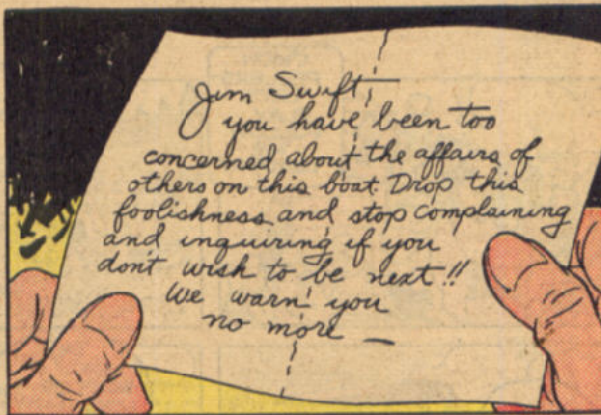 Jim Swift;
you have been too
concerned about the affairs of
others on this boat. Drop this
foolishness and stop complaining
and inquiring if you
don't wish to be next!!
We warn you
no more —